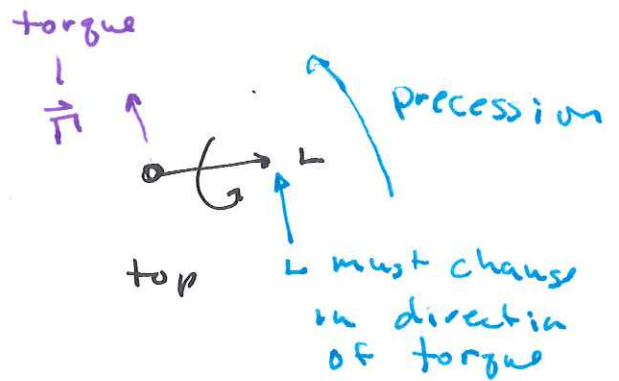 torque
Γ
precession
L
top
L must change
in direction
of torque